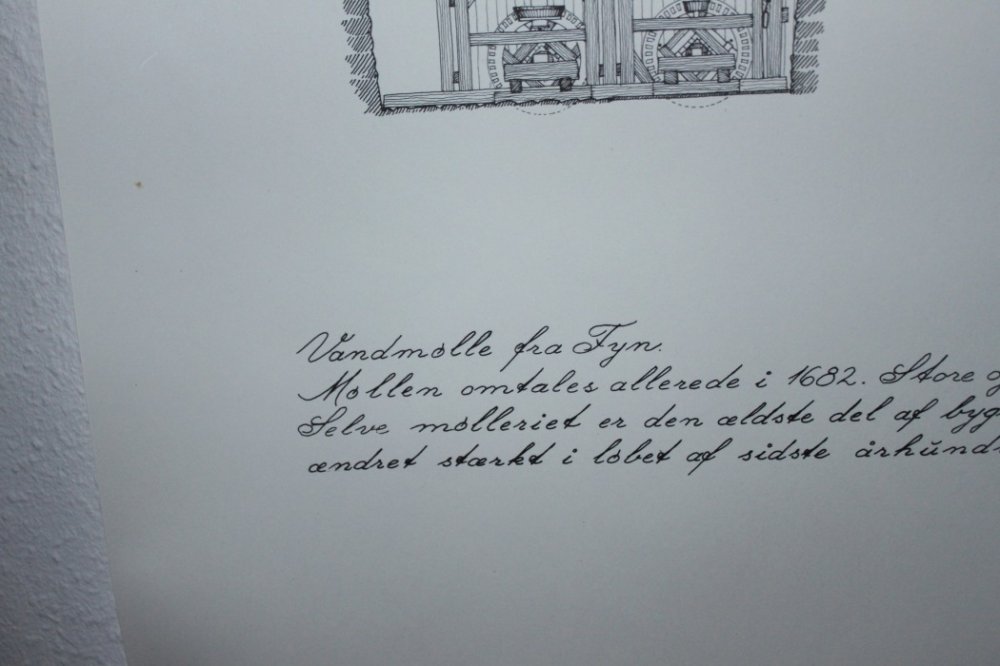 Vandmølle fra Fyn.
Møllen omtales allerede i 1682. Store
Selve mølleriet er den ældste del af byg
ændret stærkt i løbet af sidste århund